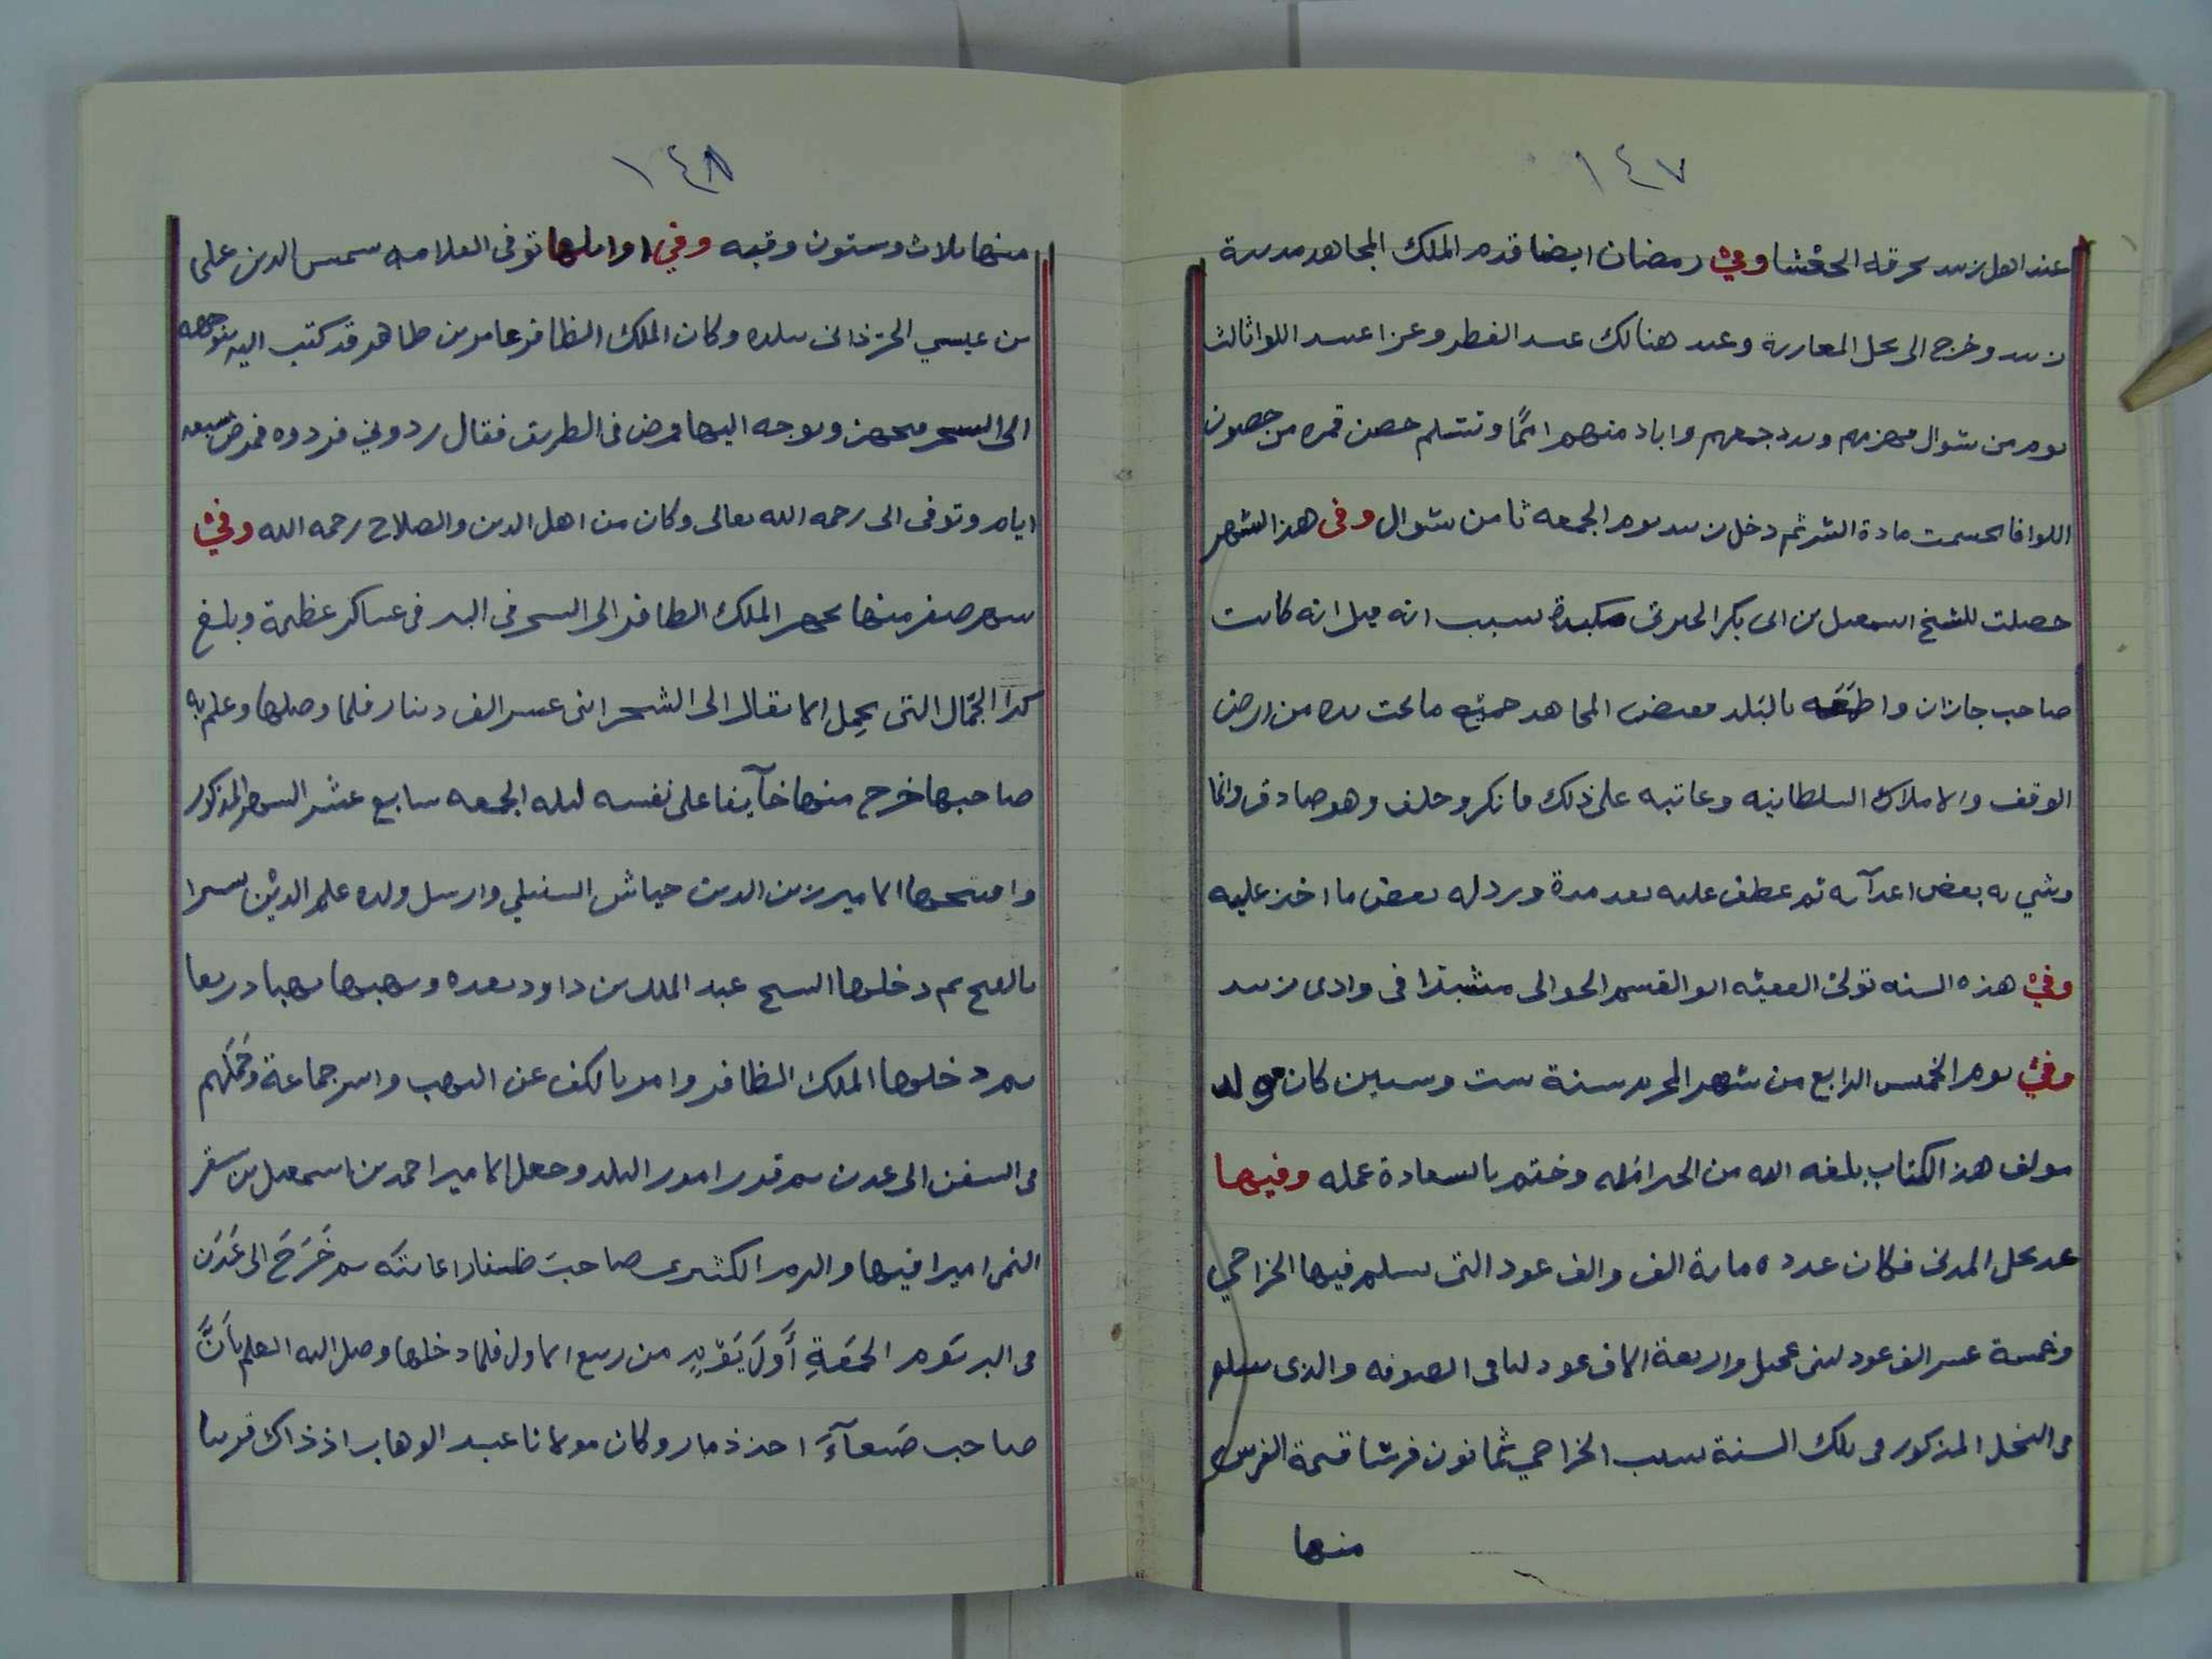 ١٤٧
عند اهل زبيد بحرقه الحفشا وفي رمضان ايضا قدم الملك المجاهد مدينة
زبيد وخرج الى نخل المعاربة وعيد هنالك عيد الفطر وعزا عبيد اللوا ثالث
يوم من شوال فهزمهم وبدد جمعهم واباد منهم امما وتسلم حصن قمره من حصون
اللوا فانحسمت مادة الشر ثم دخل زبيد يوم الجمعه ثامن شوال وفى هذا الشهر
حصلت للشيخ اسمعيل بن ابى بكر الجبرتى مكيدة بسبب انه قيل انه كاتب
صاحب جازان واطمعه بالبلد فقبض المجاهد جميع ما تحت يده من ارض
الوقف والاملاك السلطانيه وعاتبه على ذلك فانكر وحلف وهو صادق وانما
وشي به بعض اعدآيه ثم عطف عليه بعد مدة ورد له بعض ما اخذ عليه
وفي هذه السنه تولى الفقيه ابو القسم الحوالى مشيدا فى وادى زبيد
وفي يوم الخميس الرابع من شهر المحرم سنة ست وستين كان مولد
مولف هذا الكتاب بلغه الله من الخير امله وختم بالسعادة عمله وفيها
عد نخل المدنى فكان عدده ماية الف والف عود التى يسلم فيها الخراجي
وخمسة عشر الف عود لبنى عجيل واربعة الاف عود لباقى الصوفه والذى يسلم
فى النخل المذكور فى تلك السنة بسبب الخراجي ثمانون فرشا قسمة الفرس
منها
١٤٨
منها ثلاث وستون وقيه وفي اوايلها توفى العلامه شمس الدين على
بن عيسي الحرذانى ببلده وكان الملك الظافر عامر بن طاهر قد كتب اليه بتوجهه
الى الشحر فتجهز وتوجه اليها فمرض فى الطريق فقال ردوني فردوه فمرض سبعه
ايام وتوفى الى رحمه الله تعالى وكان من اهل الدين والصلاح رحمه الله وفي
شهر صفر منها تجهز الملك الظافر الى الشحر فى البر فى عساكر عظيمة وبلغ
كرا الجمال التى تحمل الاثقال الى الشحر اثنى عشر الف دينار فلما وصلها وعلم به
صاحبها خرج منها خآيفا على نفسه ليله الجمعه سابع عشر الشهر المذكور
وافتتحها الامير زين الدين جياش السنبلي وارسل ولده علم الدين بشيرا
بالفتح ثم دخلها الشيخ عبد الملك بن داود بعده ونهبها نهبا ذريعا
ثم دخلها الملك الظافر وامر بالكف عن النهب واسر جماعة وحملهم
فى السفن الى عدن ثم قرر امور البلد وجعل الامير احمد بن اسمعيل بن سقر
اليمن اميرا فيها والزم الكثيرى صاحب ظفار اعانته ثم خرج الى عدن
فى البر يوم الجمعة أول يوم من ربيع الاول فلما دخلها وصل اليه العلم بأن
صاحب صنعآء اخذ ذمار وكان مولانا عبد الوهاب اذ ذاك قريبا